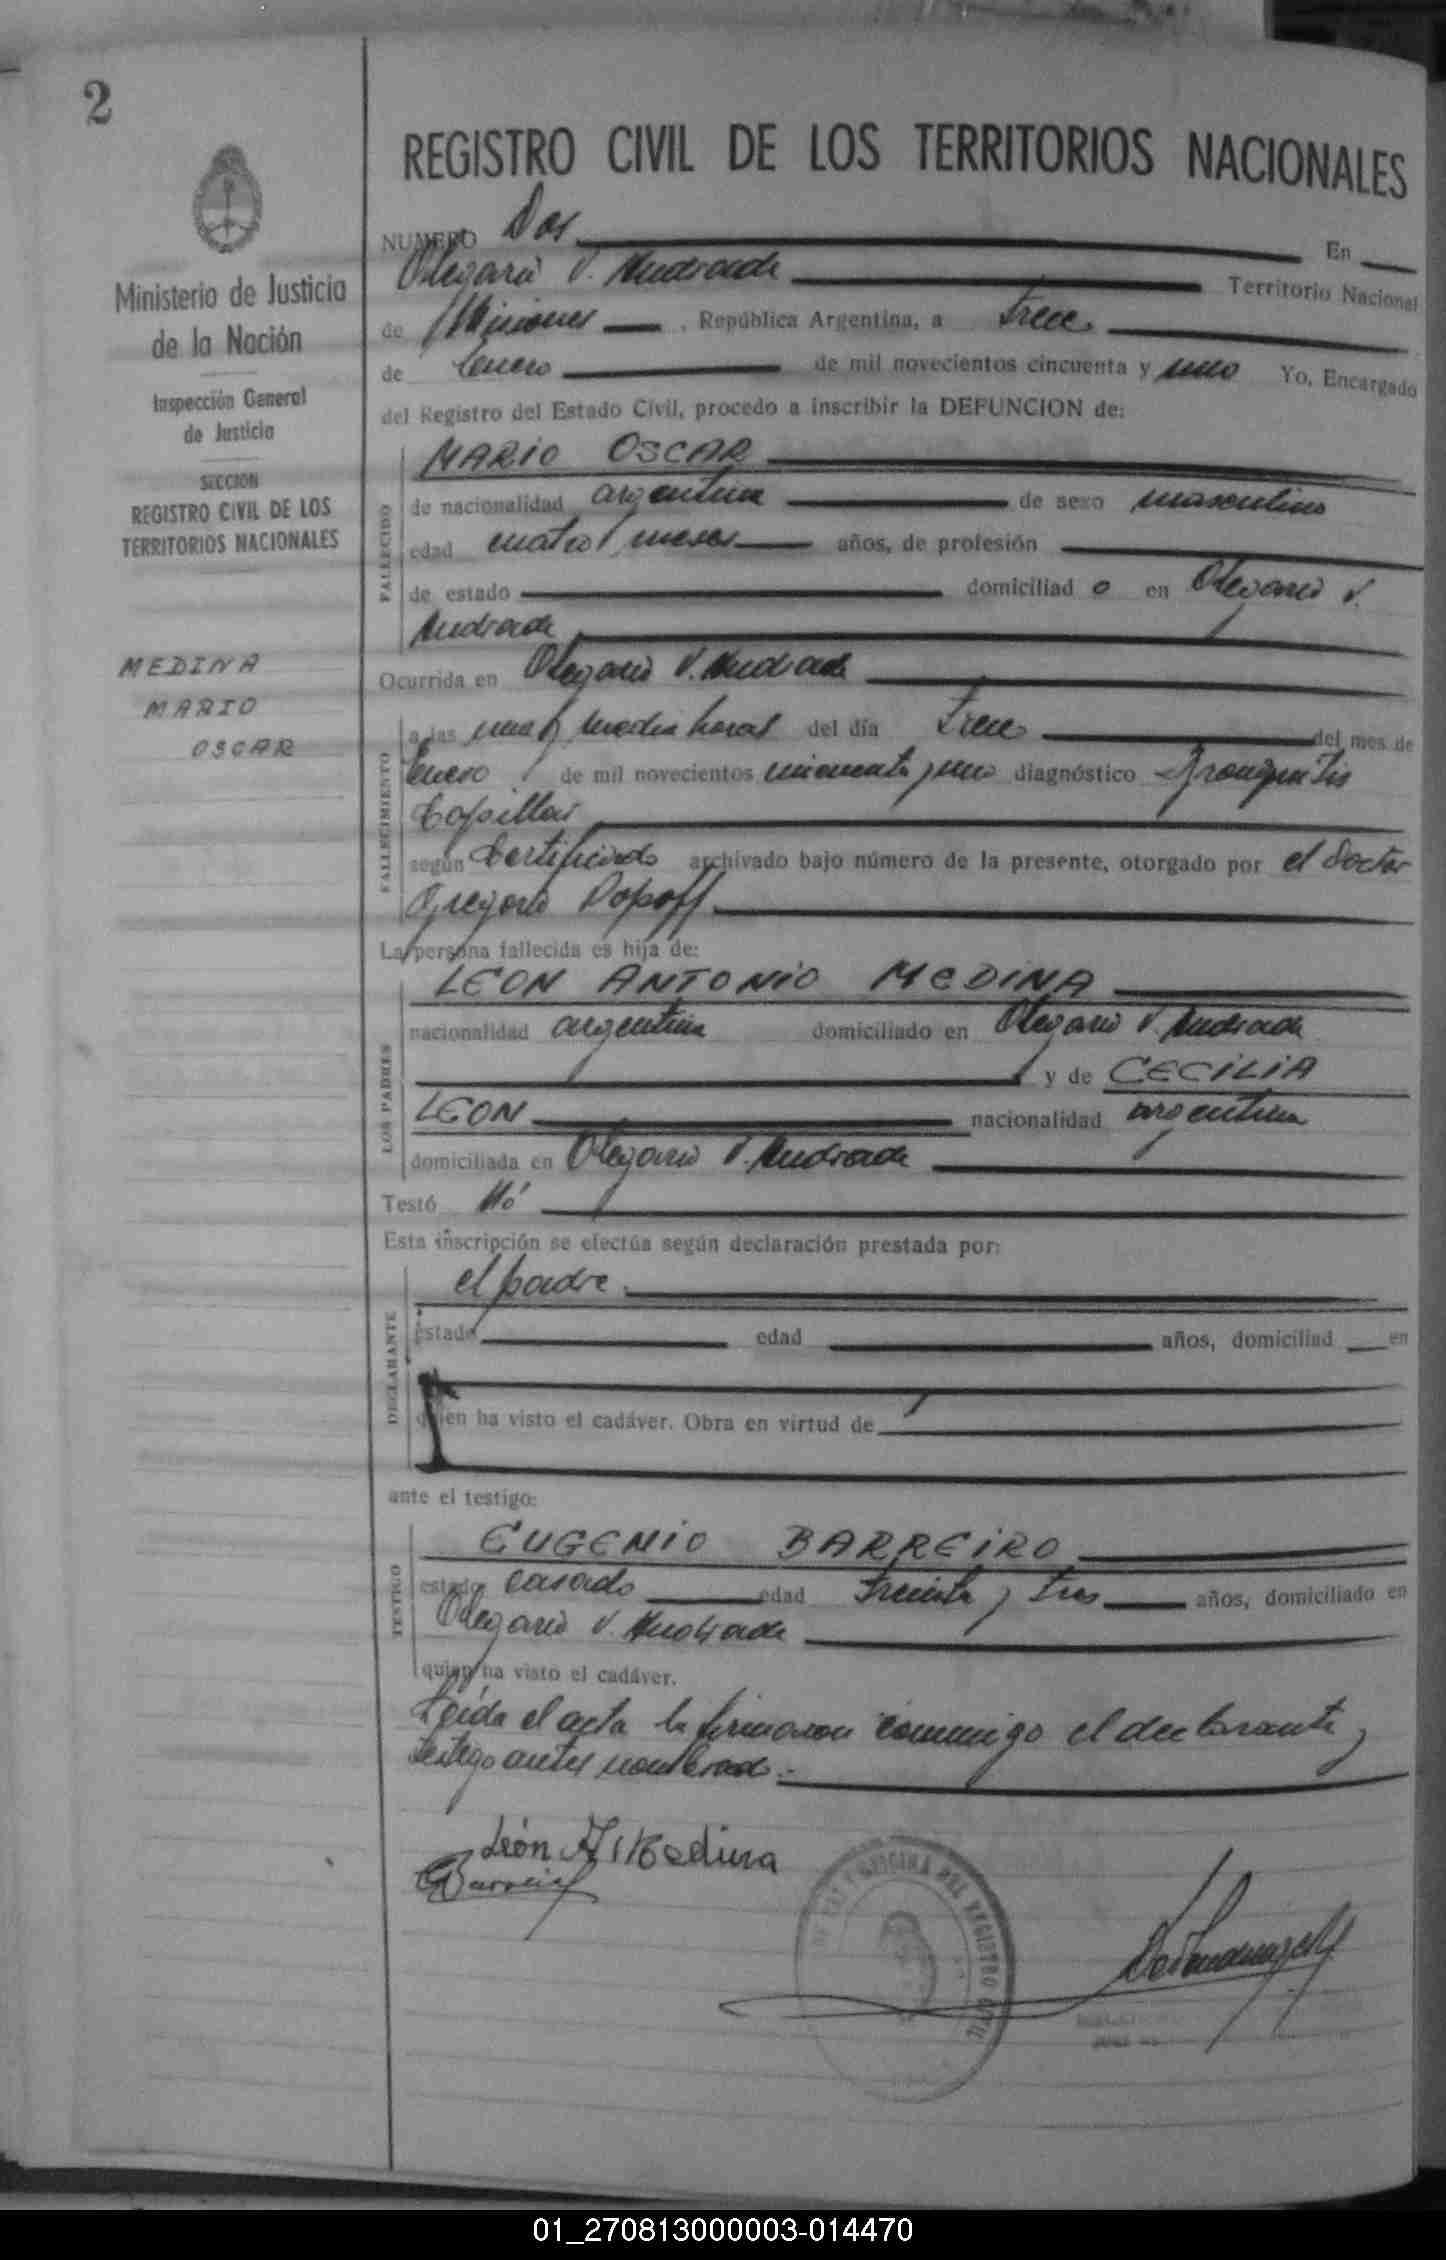 2
REGISTRO CIVIL DE LOS TERRITORIOS NACIONALES
Ministerio de Justicia
de la Nación
Inspección General
de Justicia
SECCION
REGISTRO CIVIL DE LOS
TERRITORIOS NACIONALES
MEDINA
MARIO
OSCAR
NUMERO Dos En
Olegario V. Andrade Territorio Nacional
de Misiones , República Argentina, a trece
de Enero de mil novecientos cincuenta y uno Yo, Encargado
del Registro del Estado Civil, procedo a inscribir la DEFUNCION de:
FALLECIDO
MARIO OSCAR
de nacionalidad argentina de sexo masculino
edad cuatro meses años, de profesión
de estado domiciliad o en Olegario V.
Andrade
Ocurrida en Olegario V. Andrade
FALLECIMIENTO
a las una y media horas del día trece del mes de
Enero de mil novecientos cincuenta y uno diagnóstico Bronquitis
Capillar
según Certificado archivado bajo número de la presente, otorgado por el Doctor
Gregorio Popoff
La persona fallecida es hija de:
LOS PADRES
LEON ANTONIO MEDINA
nacionalidad argentina domiciliado en Olegario V. Andrade
y de CECILIA
LEON nacionalidad argentina
domiciliada en Olegario V. Andrade
Testó Nó
Esta inscripción se efectúa según declaración prestada por:
DECLARANTE
el padre
estado edad años, domiciliad en
quien ha visto el cadáver. Obra en virtud de
ante el testigo:
TESTIGO
EUGENIO BARREIRO
estado casado edad treinta y tres años, domiciliado en
Olegario V. Andrade
quien ha visto el cadáver.
Leída el acta la firmaron conmigo el declarante y
testigo antes nombrado.-
León A. Medina
EBarreiro
OFICINA DEL REGISTRO CIVIL
01_270813000003-014470